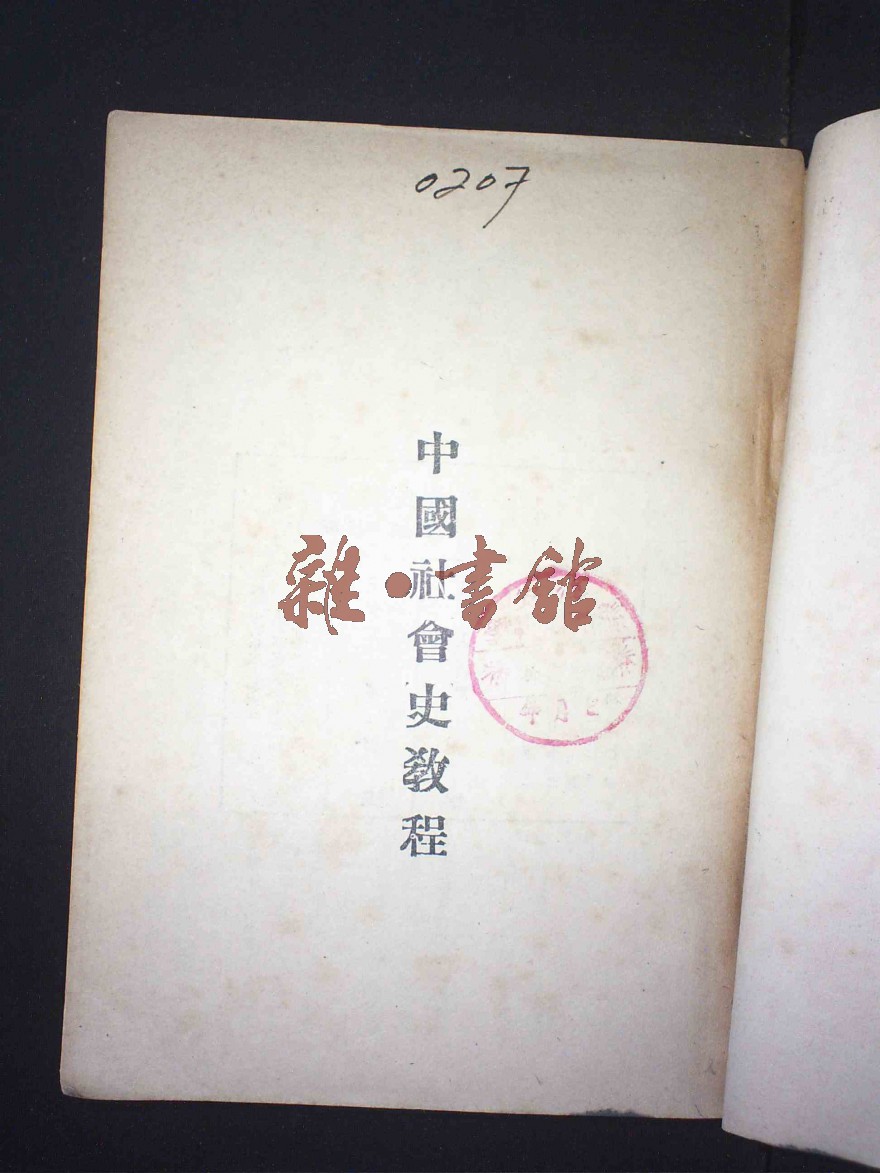 0207
中國社會史教程
雜·書館
年月